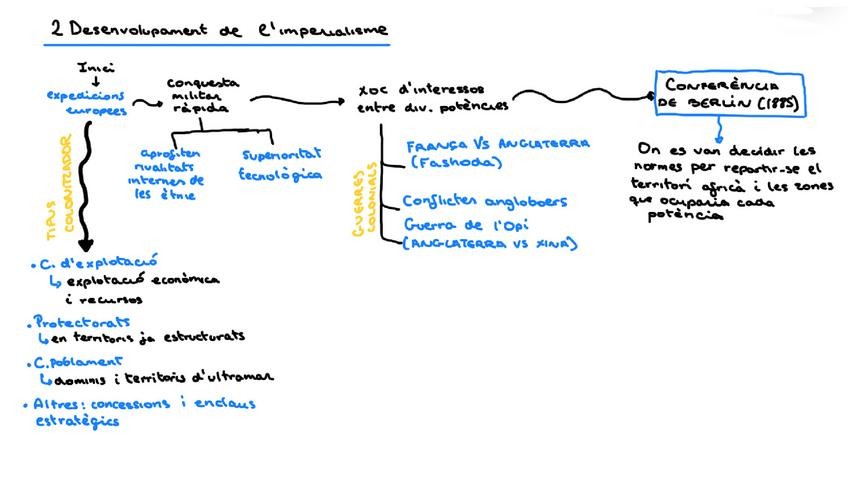 2 Desenvolupament de l'imperialisme
Inici
expedicions
europees
conquesta
militar
ràpida
aprofiten
rivalitats
internes de
les ètnie
superioritat
tecnològica
xoc d'interessos
entre div. potències
CONFERÈNCIA
DE BERLÍN (1885)
On es van decidir les
normes per repartir-se el
territori africà i les zones
que ocuparia cada
potència
GUERRES
COLONIALS
FRANÇA VS ANGLATERRA
(Fashoda)
Conflictes angloboers
Guerra de l'Opi
(ANGLATERRA VS XINA)
TIPUS
COLONITZADOR
• C. d'explotació
↳ explotació econòmica
i recursos
• Protectorats
↳ en territoris ja estructurats
• C. poblament
↳ dominis i territoris d'ultramar
• Altres: concessions i enclaus
estratègics